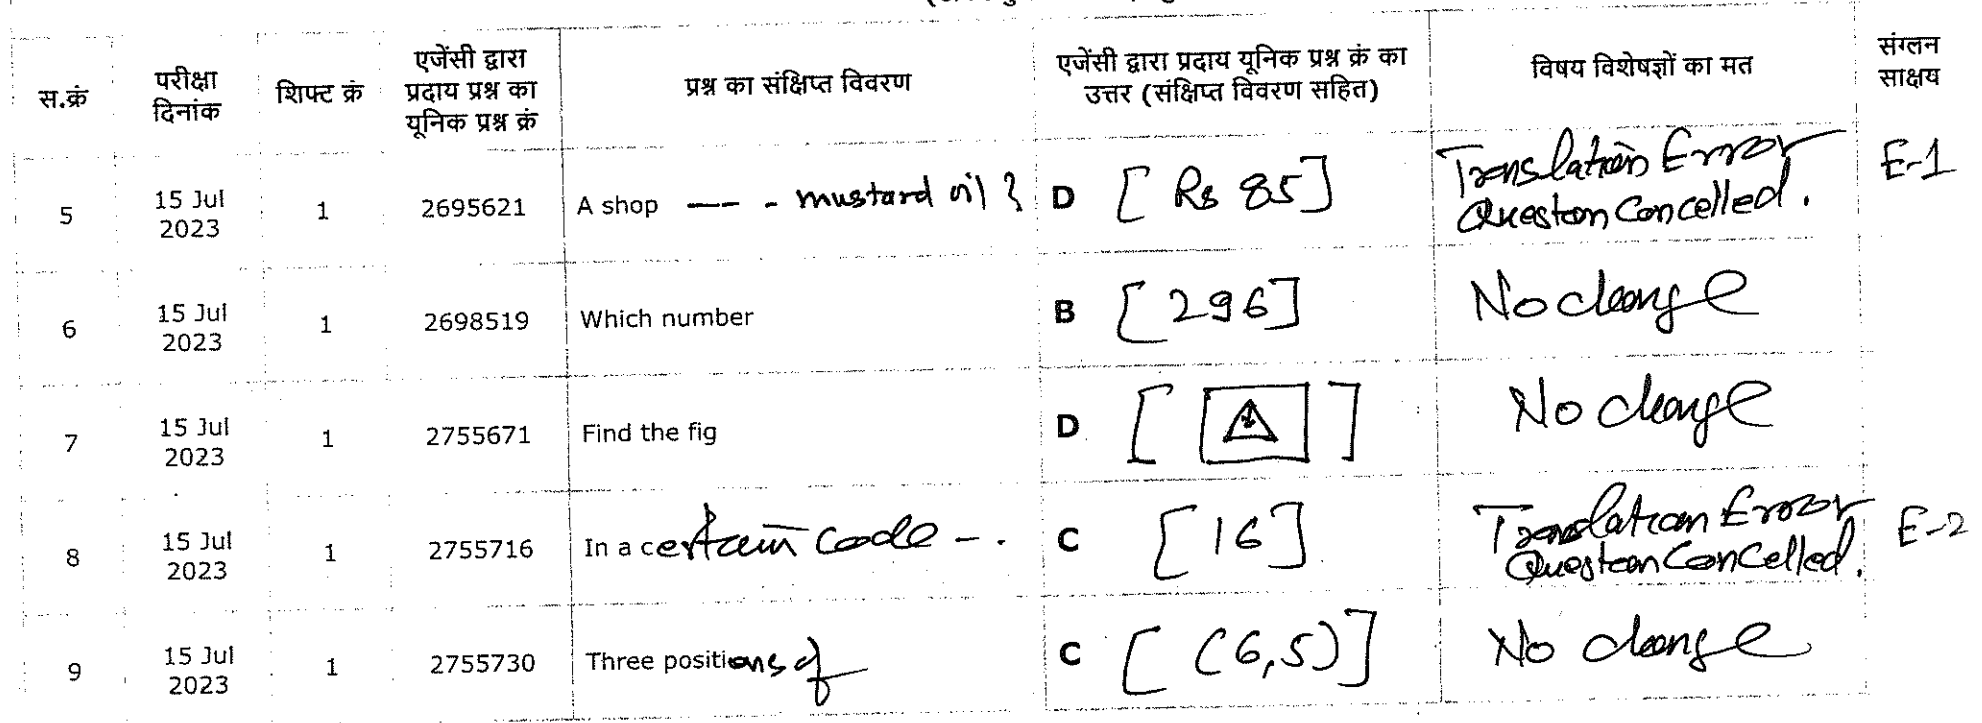 स.क्रं परीक्षा दिनांक शिफ्ट क्रं एजेंसी द्वारा प्रदाय प्रश्न का यूनिक प्रश्न क्रं प्रश्न का संक्षिप्त विवरण एजेंसी द्वारा प्रदाय यूनिक प्रश्न क्रं का उत्तर (संक्षिप्त विवरण सहित) विषय विशेषज्ञों का मत संग्लन साक्षय
5 15 Jul 2023 1 2695621 A shop --- - mustard oil ? D [ Rs 85] Translation Error Question Cancelled. E-1
6 15 Jul 2023 1 2698519 Which number B [ 296] No change
7 15 Jul 2023 1 2755671 Find the fig D [ ] No change
8 15 Jul 2023 1 2755716 In a certain code - . C [ 16] Translation Error Question Cancelled. E-2
9 15 Jul 2023 1 2755730 Three positions of C [ (6,5)] No change